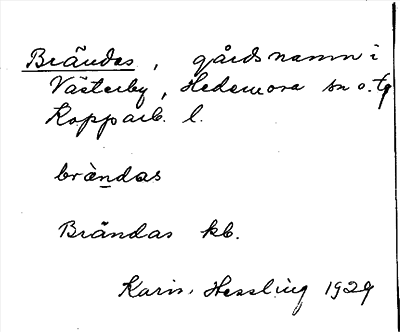 Brändas, gårdsnamn i
Västerby, Hedemora sn o. tg
Kopparb. l.
brä̀ndas
Brändas kb.
Karin Hessling 1929